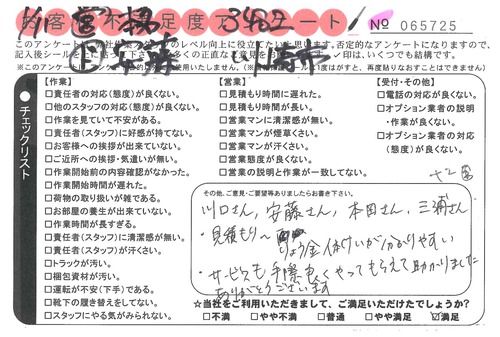 お客様不満足度アンケート
No 065725
このアンケートは、弊社作業スタッフのレベル向上に役立てたいと思います。否定的なアンケートになりますので、
チェックリスト
【作業】
□責任者の対応(態度)が良くない。
□他のスタッフの対応(態度)が良くない。
□作業を見ていて不安がある。
□責任者(スタッフ)に好感が持てない。
□お客様への挨拶が出来ていない。
□ご近所への挨拶・気遣いが無い。
□作業開始前の内容確認がなかった。
□作業開始時間が遅れた。
□荷物の取り扱いが雑である。
□お部屋の養生が出来ていない。
□作業時間が長すぎる。
□責任者(スタッフ)に清潔感が無い。
□責任者(スタッフ)が汗くさい。
□トラックが汚い。
□梱包資材が汚い。
□運転が不安(下手)である。
□靴下の履き替えをしてない。
□スタッフにやる気がみられない。
【営業】
□見積もり時間に遅れた。
□見積もり時間が長い。
□営業マンに清潔感が無い。
□営業マンが煙草くさい。
□営業マンが汗くさい。
□営業態度が良くない。
□営業の説明と作業が一致してない。
【受付・その他】
□電話の対応が良くない。
□オプション業者の説明
・作業が良くない。
□オプション業者の対応
(態度)が良くない。
その他、ご意見・ご要望等ありましたらお書き下さい。
川口さん,安藤さん,本田さん,三浦さん
・見積もり〜
りょう金体けいが分かりやすい
・サービスも手際良くやってもらえて助かりました
ありがとうございます
☆当社をご利用いただきまして、ご満足いただけたでしょうか?
□不満 □やや不満 □普通 □やや満足 ☑満足